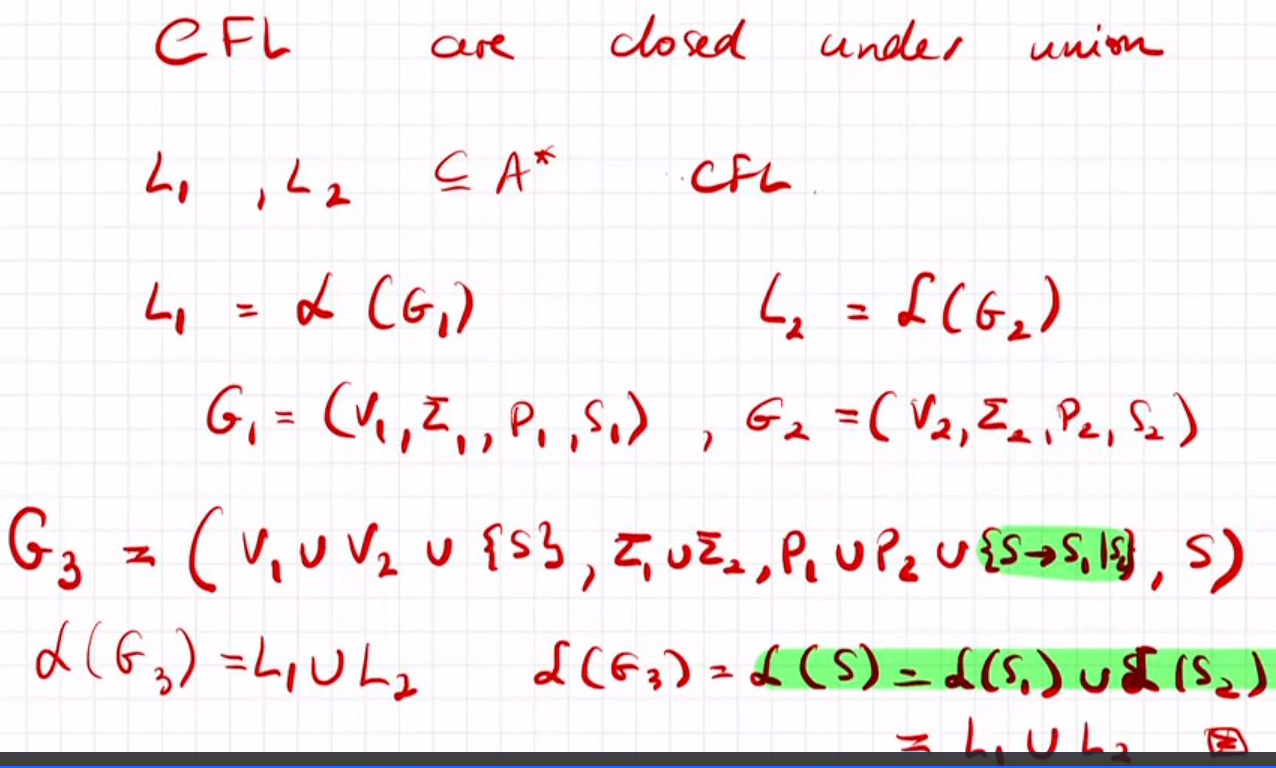 CFL are closed under union
L₁ , L₂ ⊆ A* CFL.
L₁ = ℒ(G₁) L₂ = ℒ(G₂)
G₁ = (V₁, Σ₁, P₁, S₁) , G₂ = (V₂, Σ₂, P₂, S₂)
G₃ = (V₁ ∪ V₂ ∪ {S}, Σ₁ ∪ Σ₂, P₁ ∪ P₂ ∪ {S → S₁ | S₂}, S)
ℒ(G₃) = L₁ ∪ L₂ ℒ(G₃) = ℒ(S) = ℒ(S₁) ∪ ℒ(S₂)
= L₁ ∪ L₂